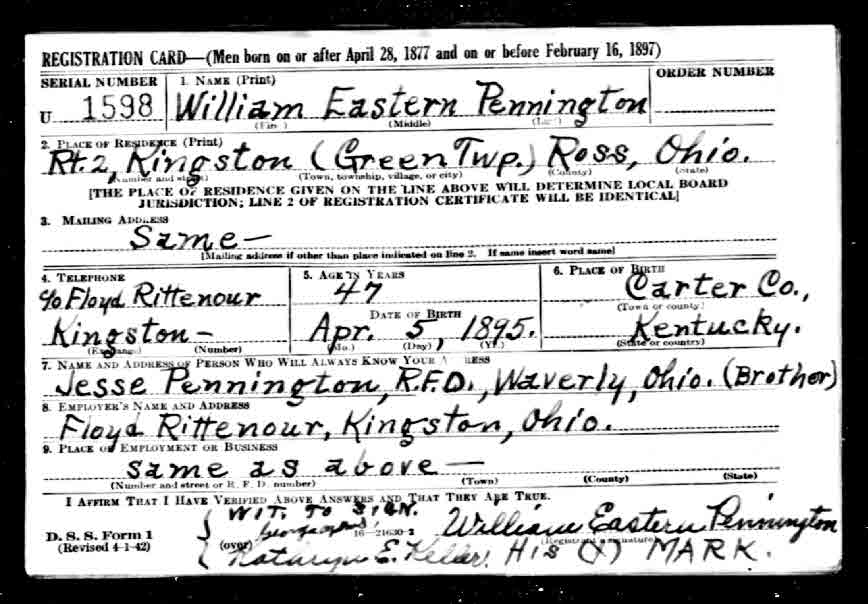 REGISTRATION CARD—(Men born on or after April 28, 1877 and on or before February 16, 1897)
SERIAL NUMBER 1. NAME (Print) ORDER NUMBER
U 1598 William Eastern Pennington
(Middle)
2. PLACE OF RESIDENCE (Print)
Rt. 2, Kingston (Green Twp.) Ross, Ohio.
(Number and street) (Town, township, village, or city) (County) (State)
[THE PLACE OF RESIDENCE GIVEN ON THE LINE ABOVE WILL DETERMINE LOCAL BOARD
JURISDICTION; LINE 2 OF REGISTRATION CERTIFICATE WILL BE IDENTICAL]
3. MAILING ADDRESS
Same—
[Mailing address if other than place indicated on line 2. If same insert word same]
4. TELEPHONE 5. AGE IN YEARS 6. PLACE OF BIRTH
c/o Floyd Rittenour 47 Carter Co.,
DATE OF BIRTH (Town or county)
Kingston— Apr. 5, 1895. Kentucky.
(Exchange) (Number) (Mo.) (Day) (Yr.) (State or country)
7. NAME AND ADDRESS OF PERSON WHO WILL ALWAYS KNOW YOUR ADDRESS
Jesse Pennington, R.F.D., Waverly, Ohio. (Brother)
8. EMPLOYER'S NAME AND ADDRESS
Floyd Rittenour, Kingston, Ohio.
9. PLACE OF EMPLOYMENT OR BUSINESS
same as above—
(Number and street or R. F. D. number) (Town) (County) (State)
I AFFIRM THAT I HAVE VERIFIED ABOVE ANSWERS AND THAT THEY ARE TRUE.
WIT. TO SIGN.
D. S. S. Form 1 16—21630-2 William Eastern Pennington
(Revised 4-1-42) (over) (Registrant's signature)
E. Keller. His (X) MARK.